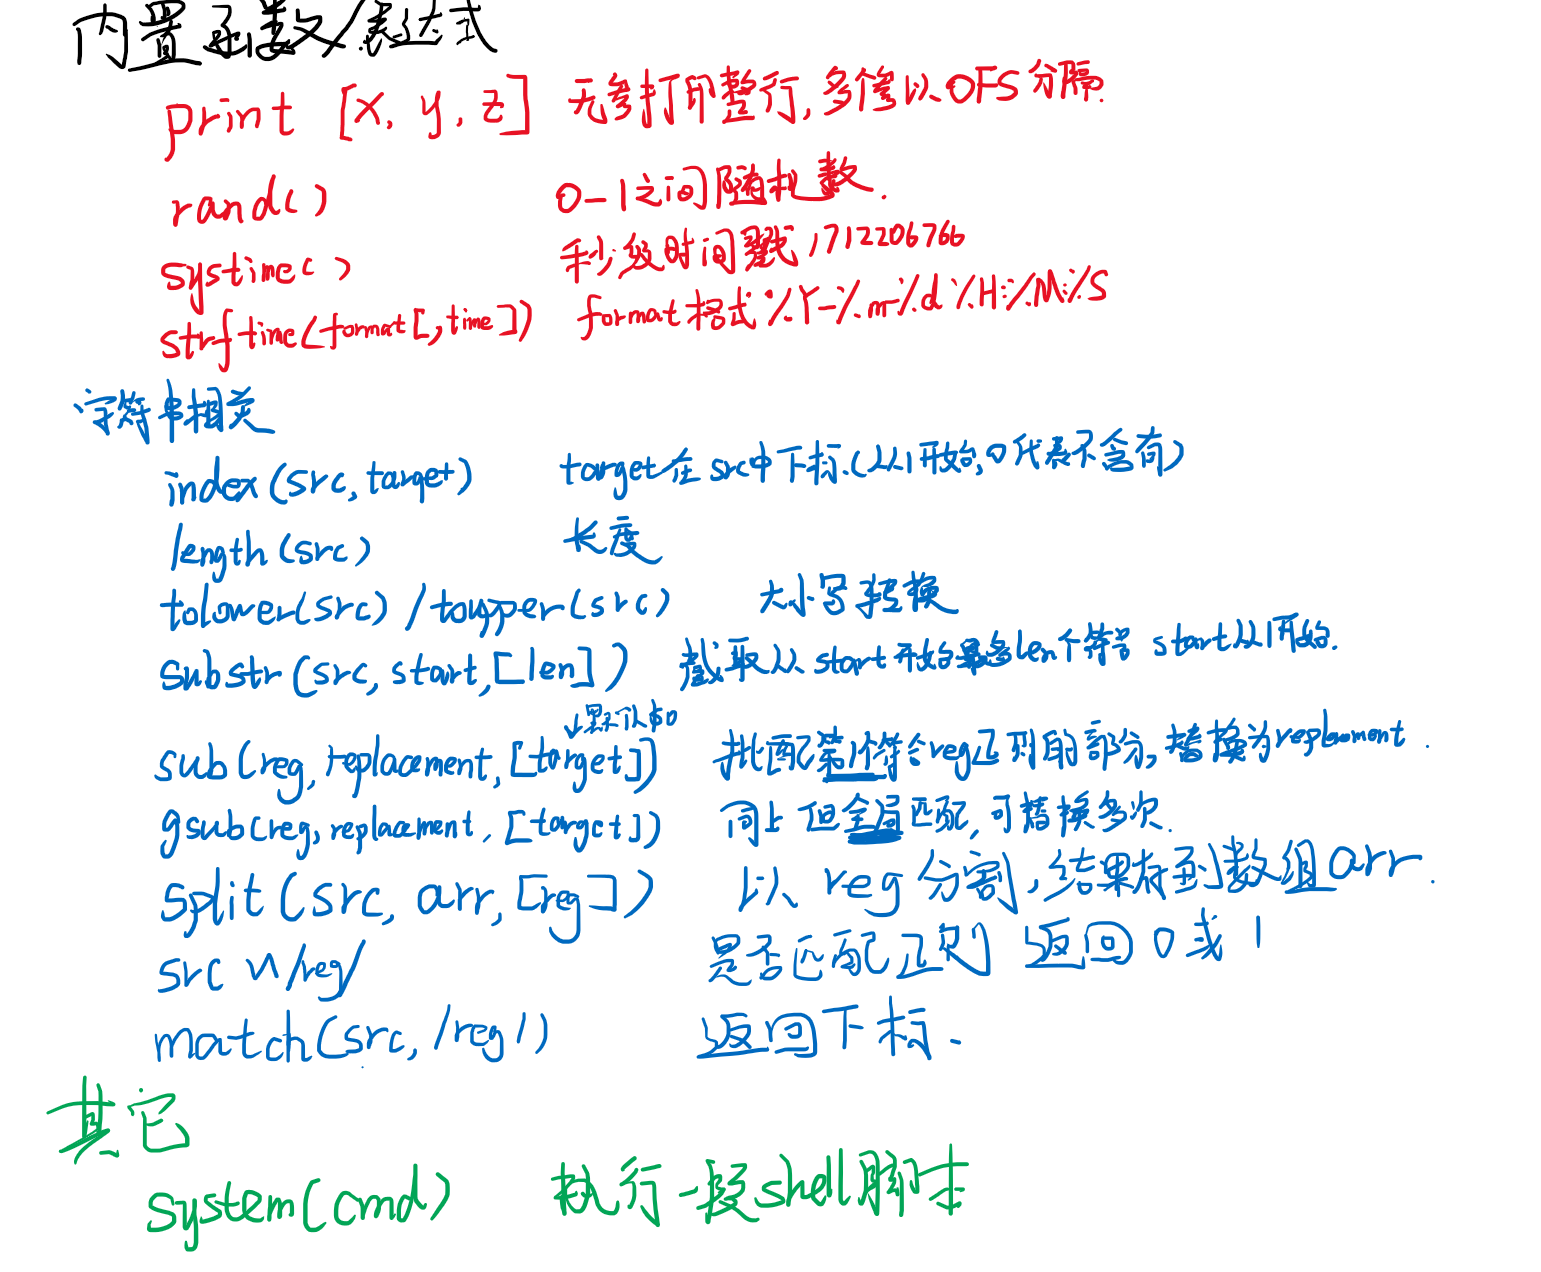 内置函数/表达式
print [x, y, z] 无参打印整行,多参以OFS分隔.
rand() 0-1之间随机数.
systime() 秒级时间戳 1712206766
strftime(format[,time]) format格式 %Y-%m-%d %H:%M:%S
字符串相关
index(src, target) target在src中下标.(从1开始,0代表不含有)
length(src) 长度
tolower(src) / toupper(src) 大小写转换
substr(src, start,[len]) 截取从start开始最多len个符号 start从1开始.
↓默认$0
sub(reg, replacement, [target]) 批配第1个符合reg正则的部分,替换为replacement.
gsub(reg, replacement, [target]) 同上 但全局匹配,可替换多次.
split(src, arr, [reg]) 以 reg 分割,结果存到数组arr.
src ~ /reg/ 是否匹配正则 返回0或1
match(src, /reg/) 返回下标.
其它
system(cmd) 执行一段shell脚本